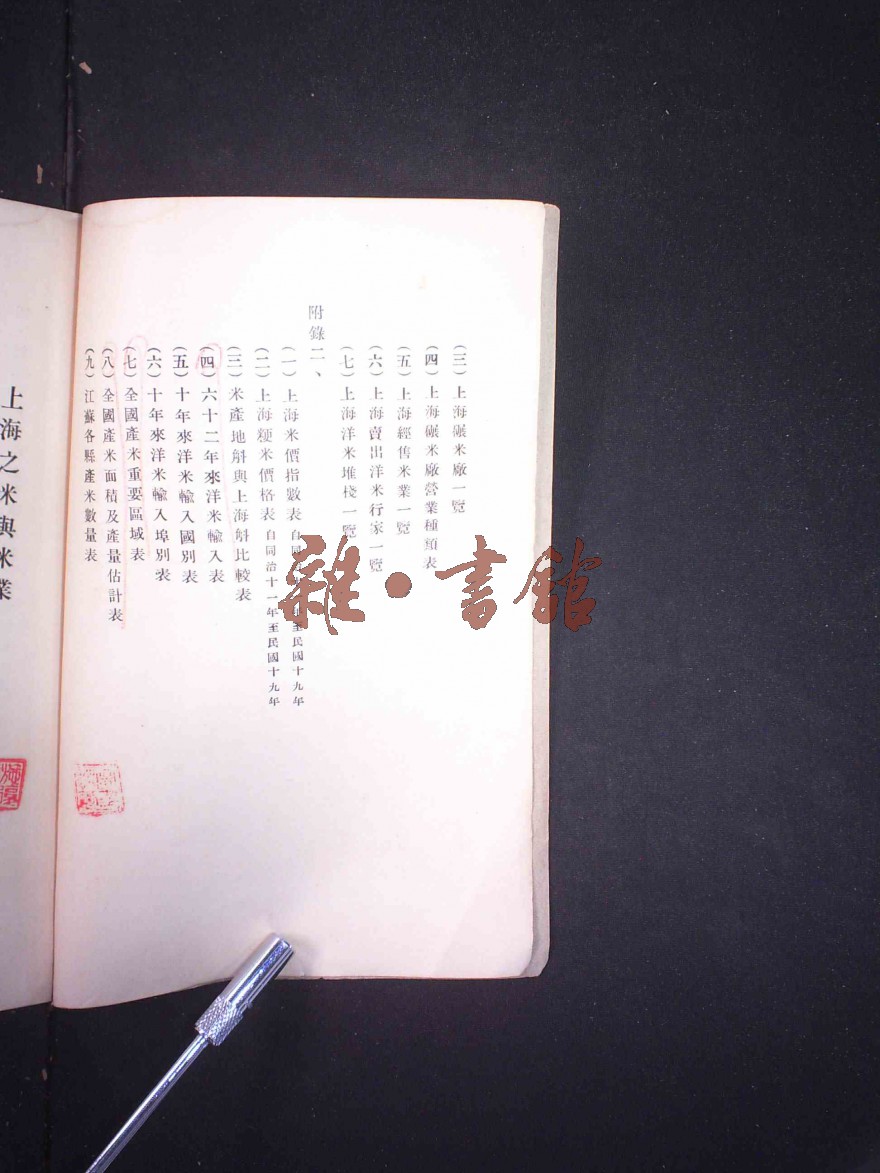 (三)上海碾米廠一覽
(四)上海碾米廠營業種類表
(五)上海經售米業一覽
(六)上海賣出洋米行家一覽
(七)上海洋米堆棧一覽
附錄二、
(一)上海米價指數表 自同 年至民國十九年
(二)上海粳米價格表 自同治十一年至民國十九年
(三)米產地斛與上海斛比較表
(四)六十二年來洋米輸入表
(五)十年來洋米輸入國別表
(六)十年來洋米輸入埠別表
(七)全國產米重要區域表
(八)全國產米面积及產量估計表
(九)江蘇各縣產米數量表
上海之米與米業
雜·書館